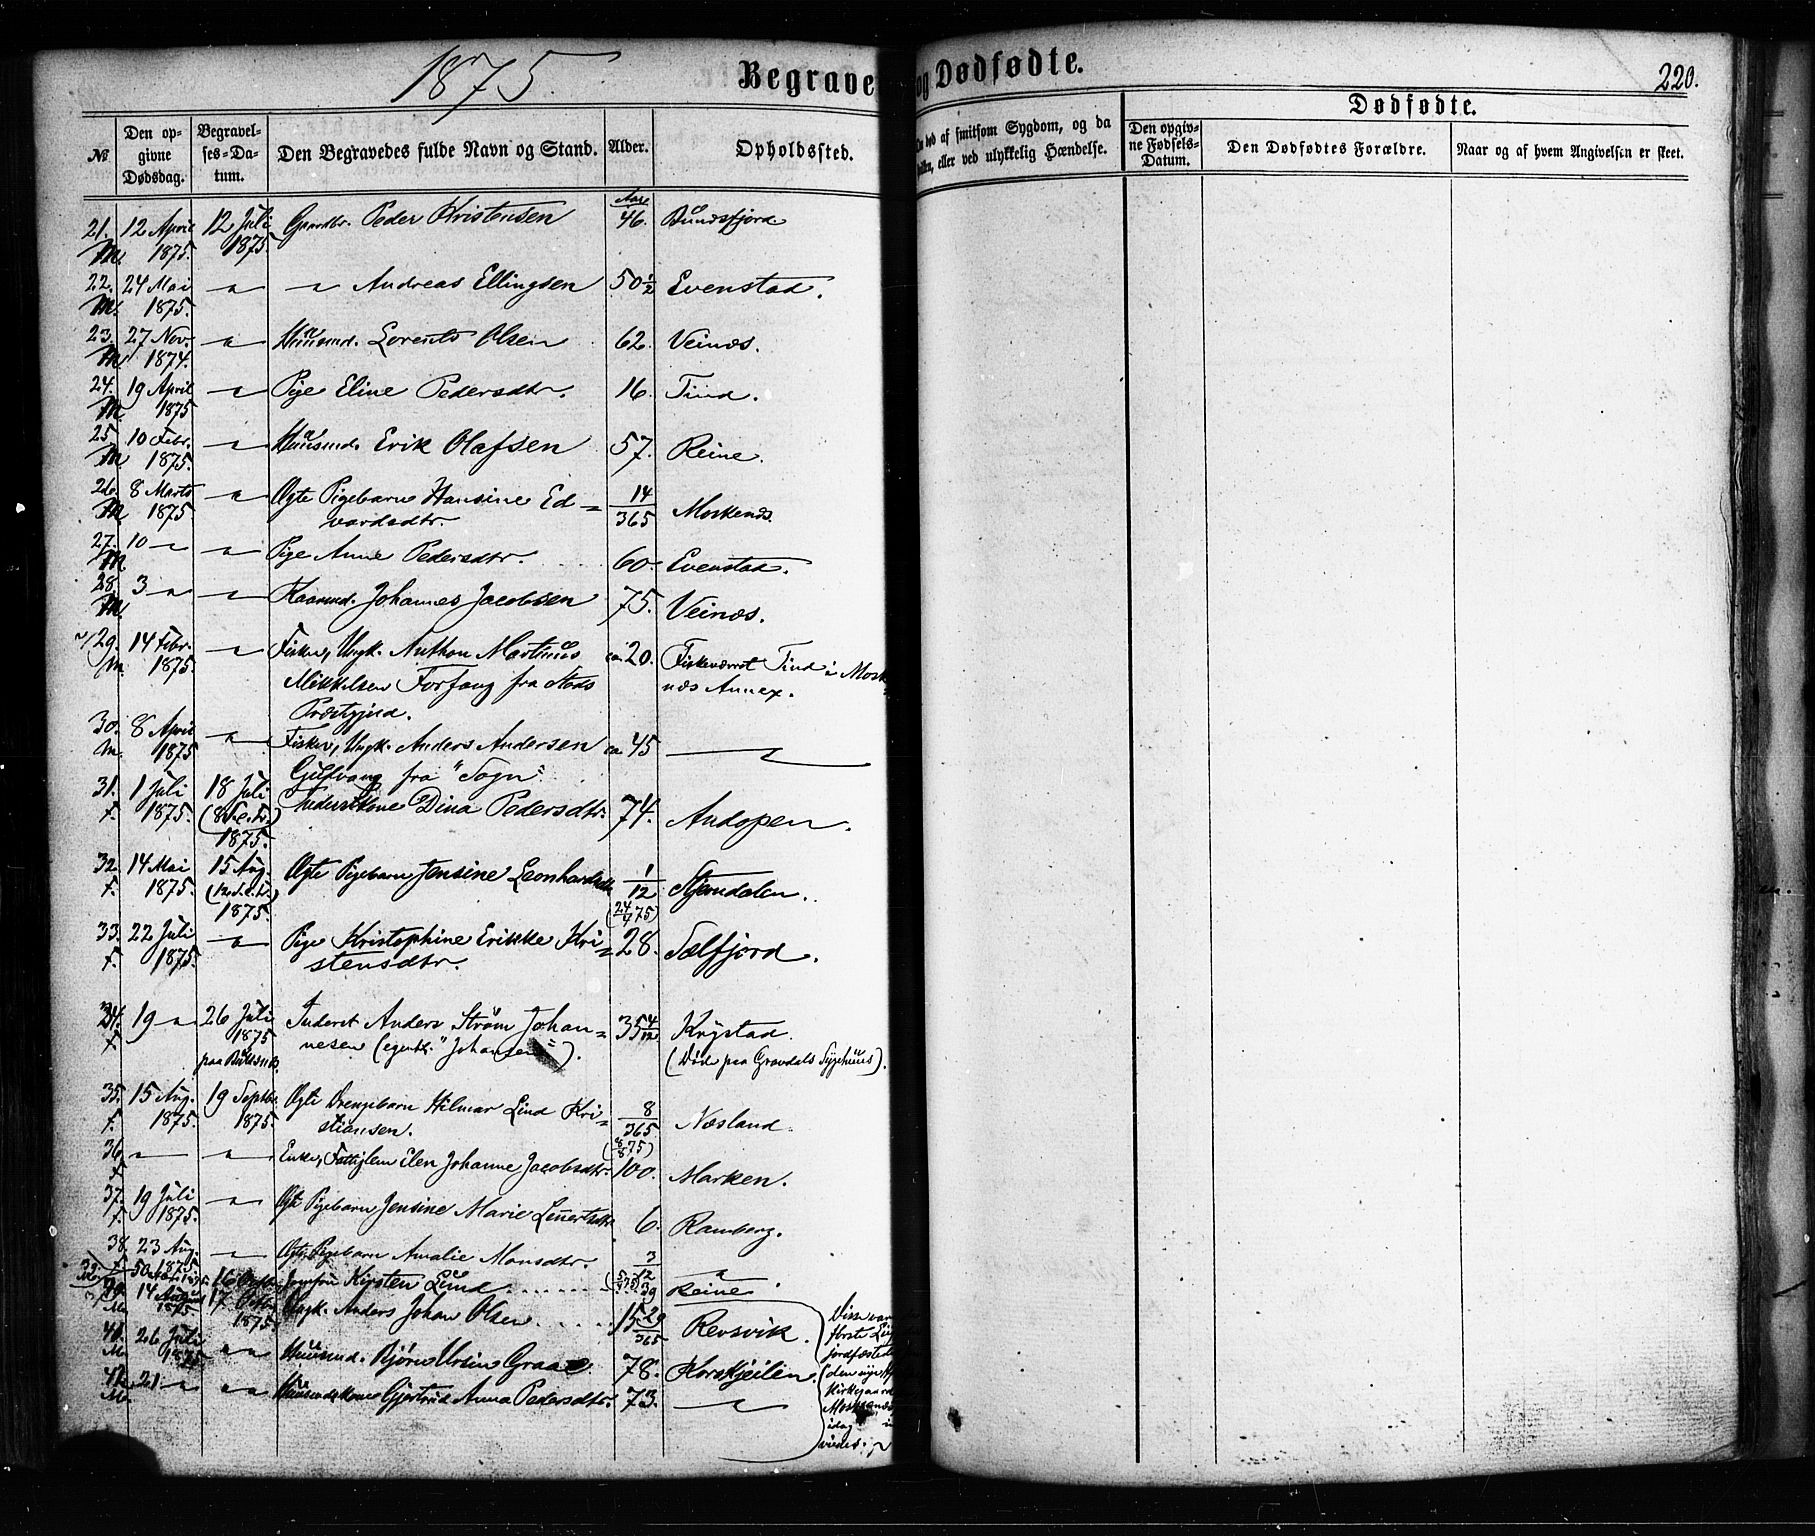 1875.
Begrave
og Dødfødte.
220.
Dødfødte.
No
Den op-
givne
Dødsdag.
Begravel-
ses-Da-
tum.
Den Begravedes fulde Navn og Stand.
Alder.
Opholdssted.
død af smitsom Sygdom, og da
eller ved ulykkelig Hændelse.
Den opgiv-
ne Fødsels-
Datum.
Den Dødfødtes Forældre.
Naar og af hvem Angivelsen er skeet.
Aar
21. 12 April 12 Juli Gaardbr. Peder Kristensen 46. Bunesfjord.
M. 1875. 1875.
22. 24 Mai " " Andreas Ellingsen 50 1/2 Evenstad.
M. 1875.
23. 27 Nov. " Huusmd. Lorents Olsen 62. Veinæs.
M 1874.
24. 19 April " Pige Eline Pedersdtr. 16. Tind.
M 1875
25. 10 Febr. " Huusmd. Erik Olafsen 57. Reine.
M 1875.
26. 8 Marts " Ægte Pigebarn Hansine Ed= 14/365 Moskenæs.
M 1875 vardsdtr.
27. 10 " " Pige Anne Pedersdtr. 60. Evenstad.
M.
28. 3 " " Kaarmd. Johannes Jacobsen 75. Veinæs.
M.
29. 14 Febr. " Fisker, Ungk. Anthon Martinus ca. 20. Fiskeværet Tind i Mosk
M. 1875. Mikkelsen Forfang fra Stods næs Annex.
Præstgjeld.
30. 8 April " Fisker, Ungk. Anders Andersen ca 45 "
M. 1875 fra "Sogn".
31. 1 Juli 18 Juli Inderstkone Dina Pedersdtr. 74. Andopen.
f. 1875. (8 S. e. Tr.)
1875.
32. 14 Mai 15 Aug. Ægte Pigebarn Jensine Leonhardsdtr 1/12
f. 1875. (12 S. e. Tr. (24/4 75)
1875.
33. 22 Juli " Pige Kristophine Erikke Kri= 28. Selfjord.
f. 1875. stensdtr.
34. 19 " 26 Juli Inderst Anders Strøm Johan= 35 4/12 Krystad.
f 1875 nesen (egentl. "Johansen"). (Døde paa Gravdals Sygehuus).
paa Buksnæs.
35. 15 Aug. 19 Septbr. Ægte Drengebarn Hilmar Lind Kri= 8/365 Næsland.
f. 1875. 1875. stiansen. (8/8 75)
36. " " Enke, Fattiglem Elen Johanne Jacobsdtr. 100. Marken.
f
37. 19 Juli " Ægte Pigebarn Jensine Marie 6. Ramberg.
f. 1875.
38. 23 Aug. " Ægte Pigebarn Amalie Monsdtr. 3/12 "
f 1875
Jomfru Kirsten Lund 39 Reine.
14 August 17 Octbr. Ungk. Anders Johan Olsen 15 29/365 Revsvik.
M. 1875 1875.
41. 26 Juli " " Huusmd. Bjørn Ursin Graae. 78. Horskjeilen.
M. 1875
42. 21 " " " Huusmdskone Gjertrud Anna Pedersdtr. 73. "
M.
Disse var
første
jordfæstede
den nye
Kirkegaard
Moskenæs
idag